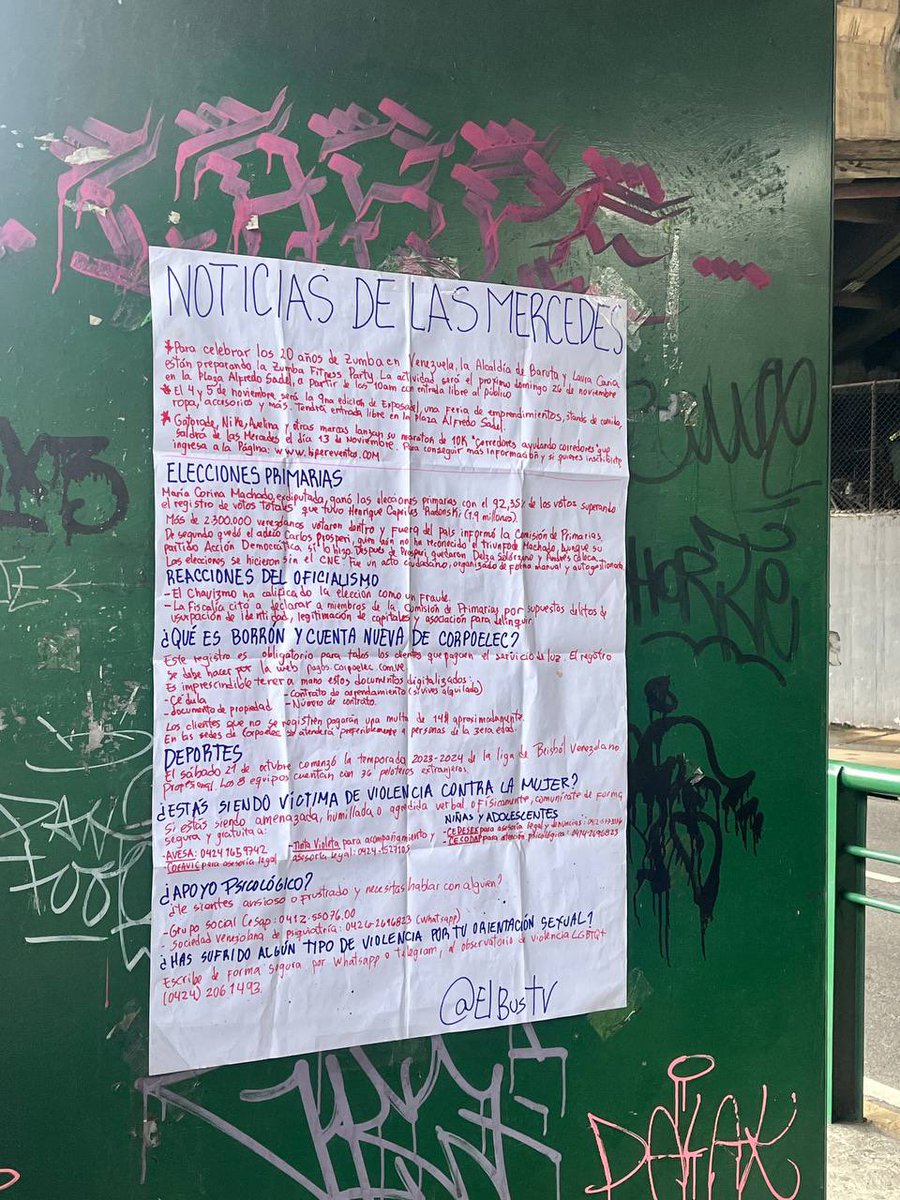 NOTICIAS DE LAS MERCEDES
*Para celebrar los 20 años de Zumba en Venezuela, la Alcaldía de Baruta y Laura Caria
están preparando la Zumba Fitness Party. La actividad será el próximo domingo 26 de noviembre
en la Plaza Alfredo Sadel, a partir de las 10am con entrada libre al público
*El 4 y 5 de noviembre será la 9na edición de Expasadel, una feria de emprendimientos, stands de comida,
ropa, accesorios y más. Tendrá entrada libre en la Plaza Alfredo Sadel.
*Gatorade, Nike, Avelina y otras marcas lanzan su maratón de 10K "Corredores ayudando corredores" que
saldrá de las Mercedes el día 13 de Noviembre. Para conseguir más información y si quieres inscribirte,
ingresa a la Página: www.hipereventos.com
ELECCIONES PRIMARIAS
María Corina Machado, exdiputada, ganó las elecciones primarias con el 92,35% de los votos superando
el registro de votos totales que tuvo Henrique Capriles Radonski (1.9 millones).
Más de 2.300.000 venezolanos votaron dentro y fuera del país informó la Comisión de Primarias
De segundo quedó el adeco Carlos Prosperi, quien aún no ha reconocido el triunfo de Machado, aunque su
partido Acción Democrática sí lo hizo. Después de Prosperi, quedaron Delza Solórzano y Andrés Caleca.
Las elecciones se hicieron sin el CNE. Fue un acto ciudadano, organizado de forma manual y autogestionada
REACCIONES DEL OFICIALISMO
- El Chavizmo ha calificado la elección como un fraude.
- La Fiscalía citó a declarar a miembros de la Comisión de Primarias por supuestos delitos de
usurpación de identidad, legitimación de capitales y asociación para delinquir
¿QUÉ ES BORRÓN Y CUENTA NUEVA DE CORPOELEC?
Este registro es obligatorio para todos los clientes que paguen el servicio de luz. El registro
se debe hacer por la web pagos.corpoelec.com.ve
Es imprescindible tener a mano estos documentos digitalizados:
- Cédula - Contrato de arrendamiento (si vives alquilado)
- documento de propiedad - Número de contrato.
Los clientes que no se registren pagarán una multa de 14$ aproximadamente.
En las sedes de Corpoelec se atenderá preferiblemente a personas de la 3era edad.
DEPORTES
El sábado 21 de octubre comenzó la temporada 2023-2024 de la liga de Béisbol Venezolano
Profesional. Los 8 equipos cuentan con 36 peloteros extranjeros.
¿ESTÁS SIENDO VÍCTIMA DE VIOLENCIA CONTRA LA MUJER?
Si estás siendo amenazada, humillada o agredida verbal o físicamente, comunícate de forma
segura y gratuita a:
NIÑAS Y ADOLESCENTES
- AVESA: 0424 165 9742 - Tinta Violeta para acompañamiento y - CEDESEX para asesoría legal y denuncias:
COFAVIC para asesoría legal asesoría legal: 0424-1527105 - CECODAP para atención psicológica: 0424-2696823
¿APOYO PSICOLÓGICO?
¿Te sientes ansioso o frustrado y necesitas hablar con alguien?
- Grupo social Cesap: 0412.55076.00
- Sociedad Venezolana de psiquiatría: 0426-2616823 (Whatsapp)
¿HAS SUFRIDO ALGÚN TIPO DE VIOLENCIA POR TU ORIENTACIÓN SEXUAL?
Escribe de forma segura por Whatsapp o telegram, al observatorio de violencia LGBTQ+
(0424) 206 1493.
@ElBusTV